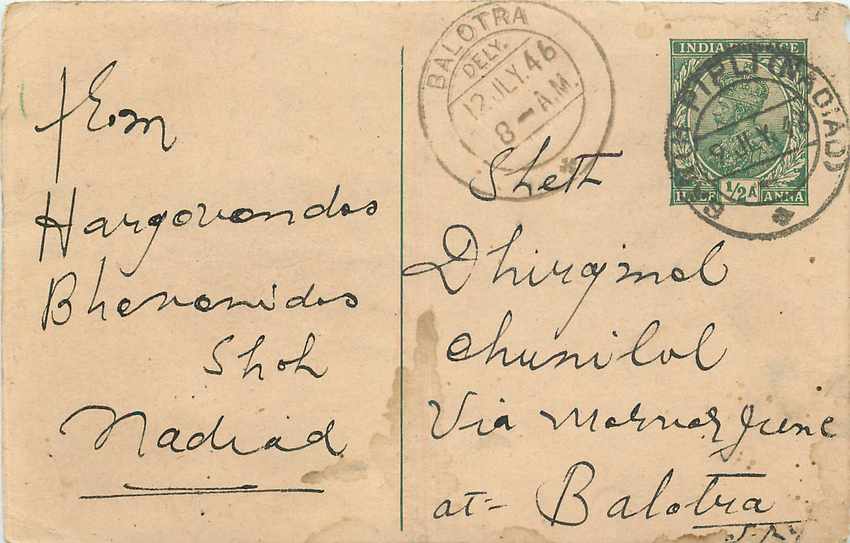 From
Hargovandas
Bhavanidas
Shah
Nadiad
BALOTRA
DELY.
12 JLY. 46
8 - A.M.
INDIA POSTAGE
1/2 A
HALF ANNA
PIPLI (NADIAD)
9 JLY. 46
Sheth
Dhirajmal
Chunilal
Via Marwar Junc
at- Balotra